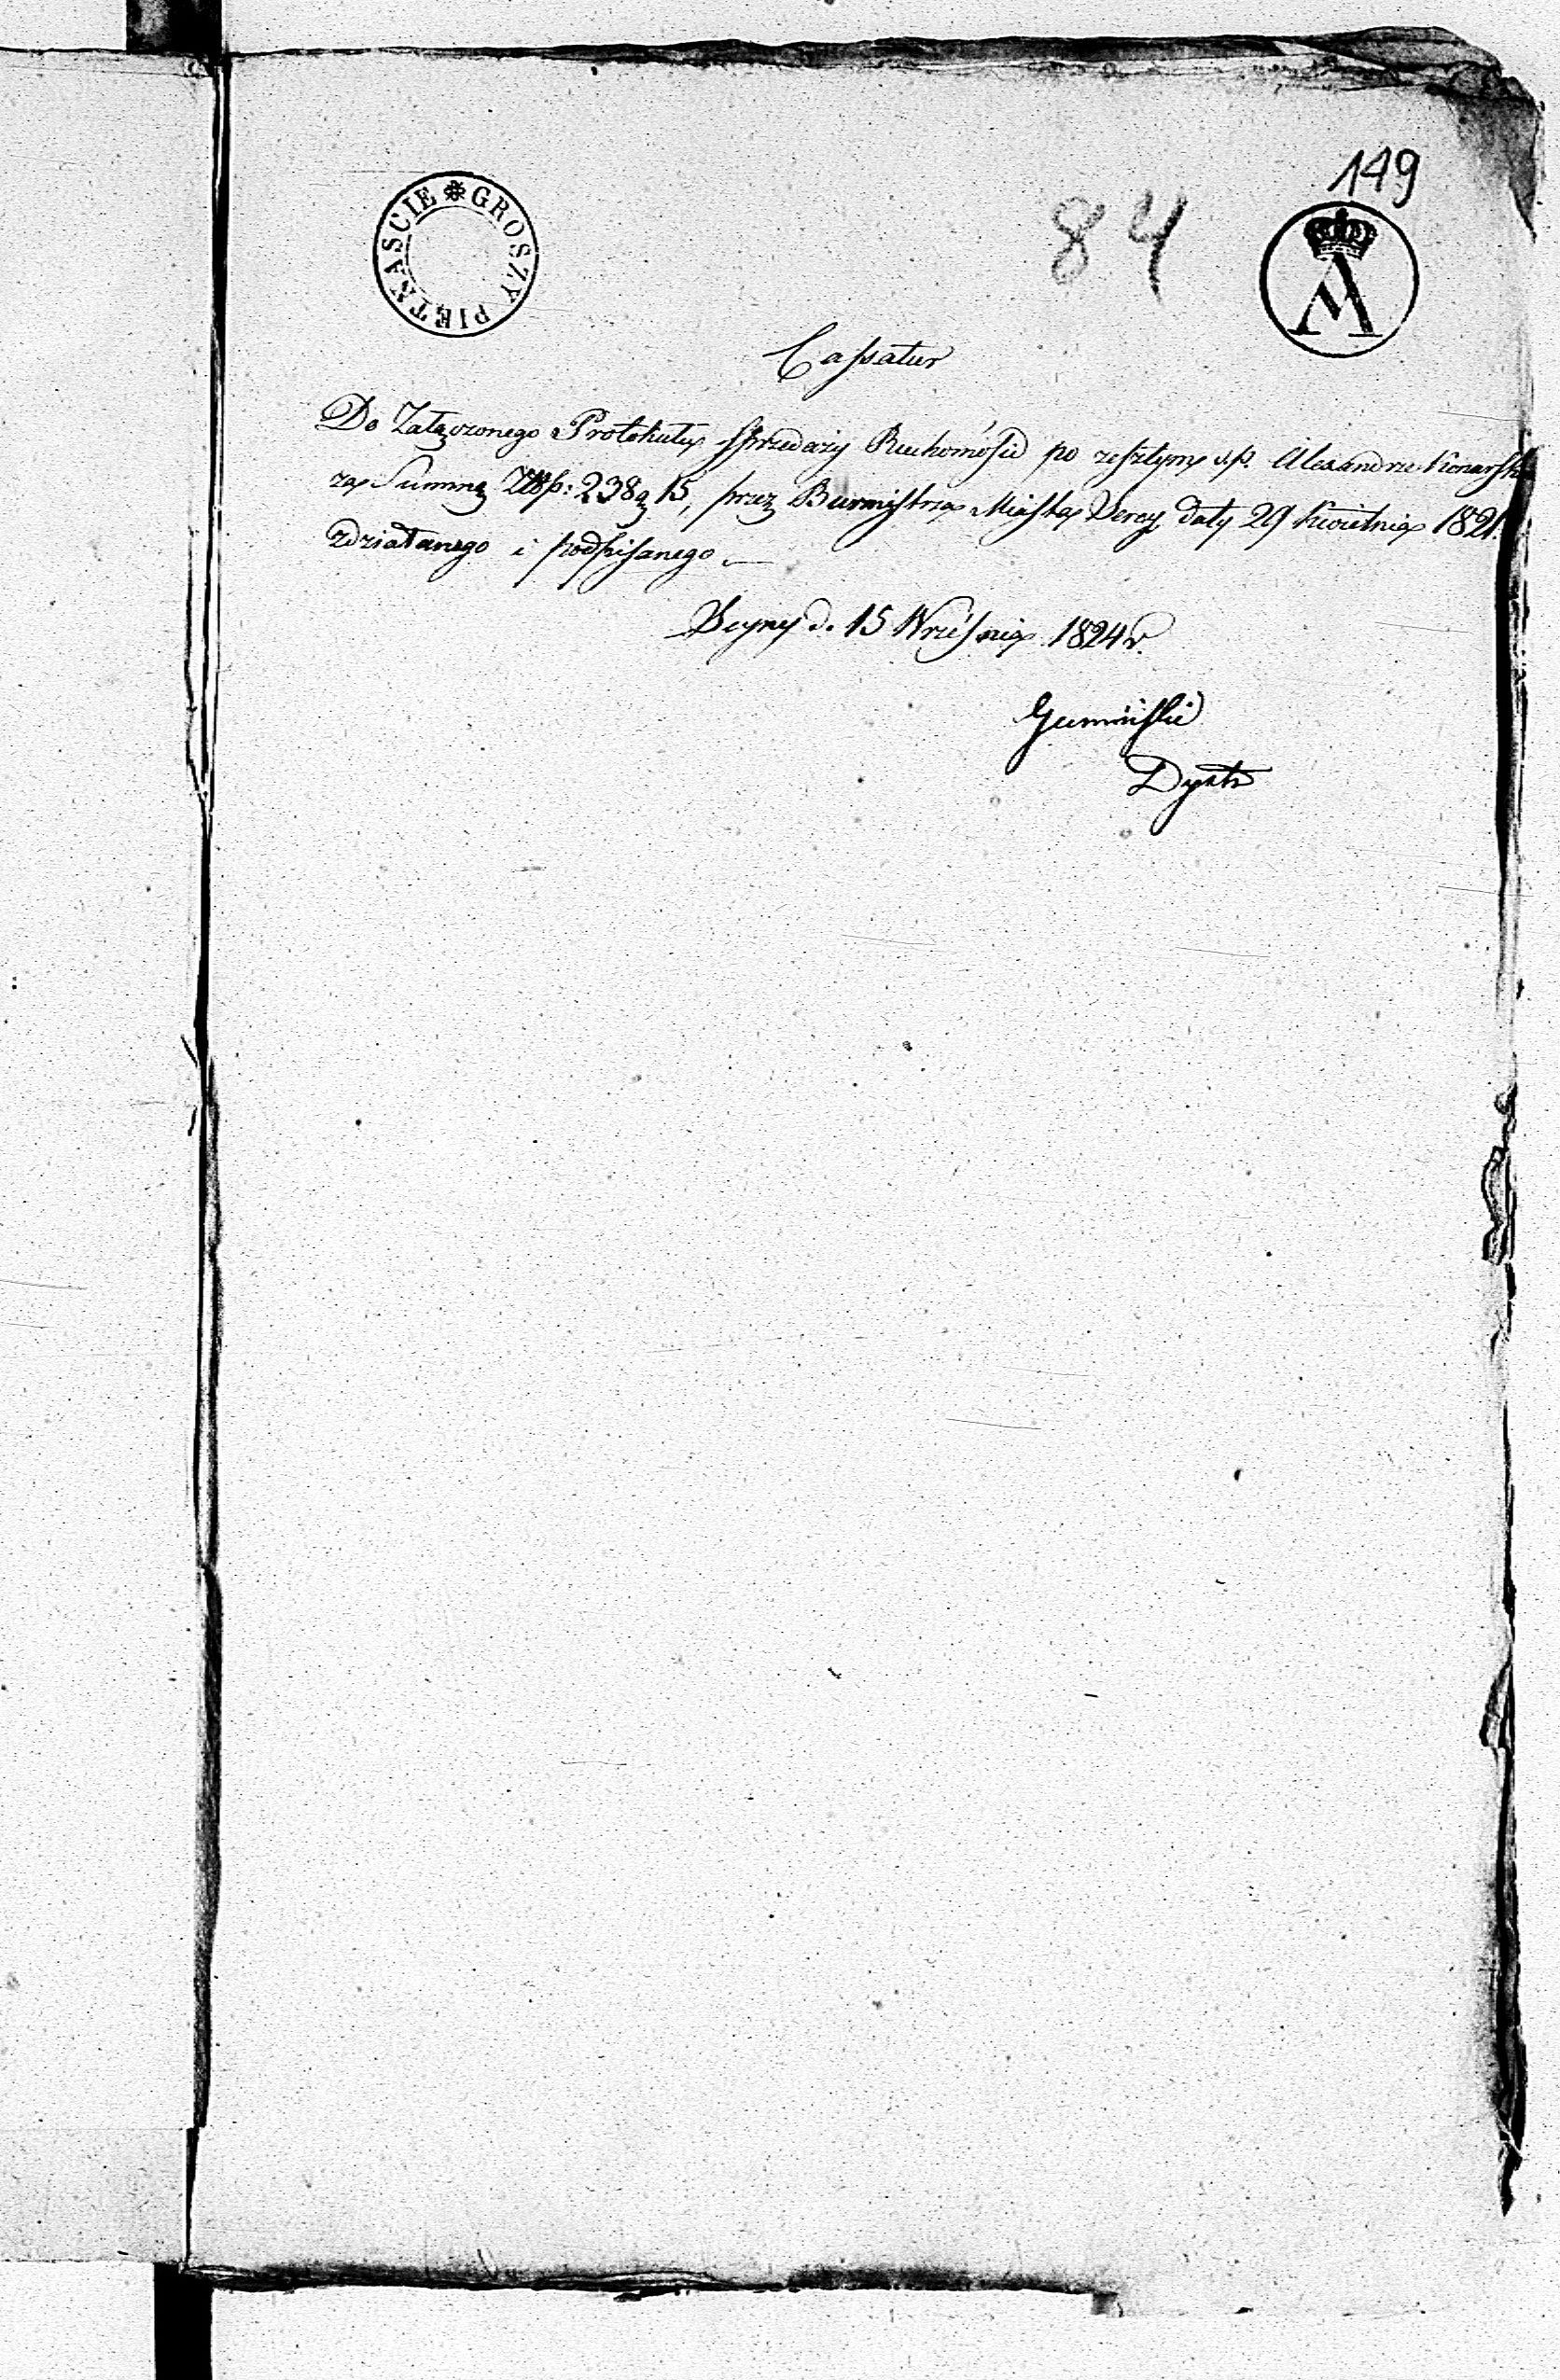 149
84
GROSZY PIĘTNAŚCIE
Cassatur
Do Załączonego Protokułu sprzedaży Ruchomości po zeszłym ś.p. Alexandrze Konarsk
za Summę Złłp: 238 g 15, przez Burmistrza Miasta Serey daty 29 Kwietnia 1821.
zdziałanego i podpisanego.
Seyny d. 15 Września 1824 r.
Gumiński